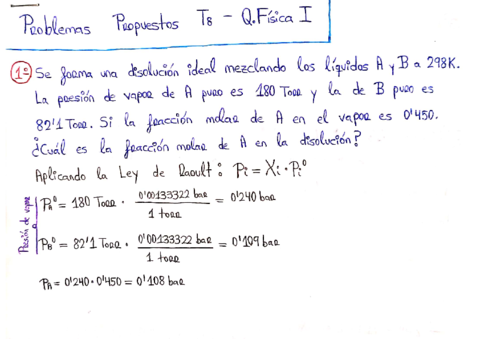 Problemas Propuestos T8 - Q.Física I
1º Se forma una disolución ideal mezclando los líquidos A y B a 298K.
La presión de vapor de A puro es 180 Torr y la de B puro es
82'1 Torr. Si la fracción molar de A en el vapor es 0'450.
¿Cuál es la fracción molar de A en la disolución?
Aplicando la Ley de Raoult: Pi = Xi · Pi⁰
Presión de vapor
PA⁰ = 180 Torr · 0'00133322 bar / 1 torr = 0'240 bar
PB⁰ = 82'1 Torr · 0'00133322 bar / 1 torr = 0'109 bar
PA = 0'240 · 0'450 = 0'108 bar